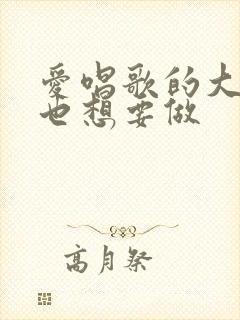 愛唱歌的大
也想要做
高月祭